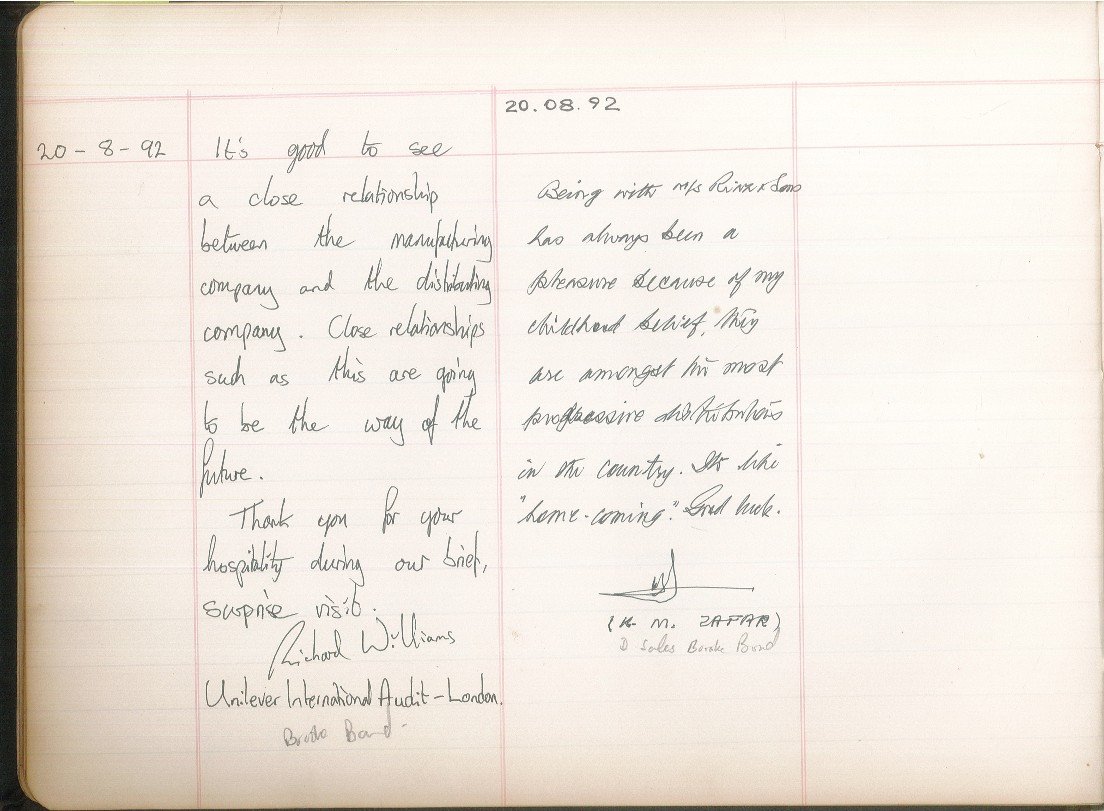 20 - 8 - 92
It's good to see
a close relationship
between the manufacturing
company and the distributing
company. Close relationships
such as this are going
to be the way of the
future.
Thank you for your
hospitality during our brief,
surprise visit.
Richard Williams
Unilever International Audit - London.
Brooke Bond
20.08.92
Being with m/s Riaz & Sons
has always been a
pleasure because of my
childhood belief, they
are amongst the most
progressive distributors
in the country. Its like
"home-coming." Good luck.
(K M. ZAFAR)
D Sales Brooke Bond